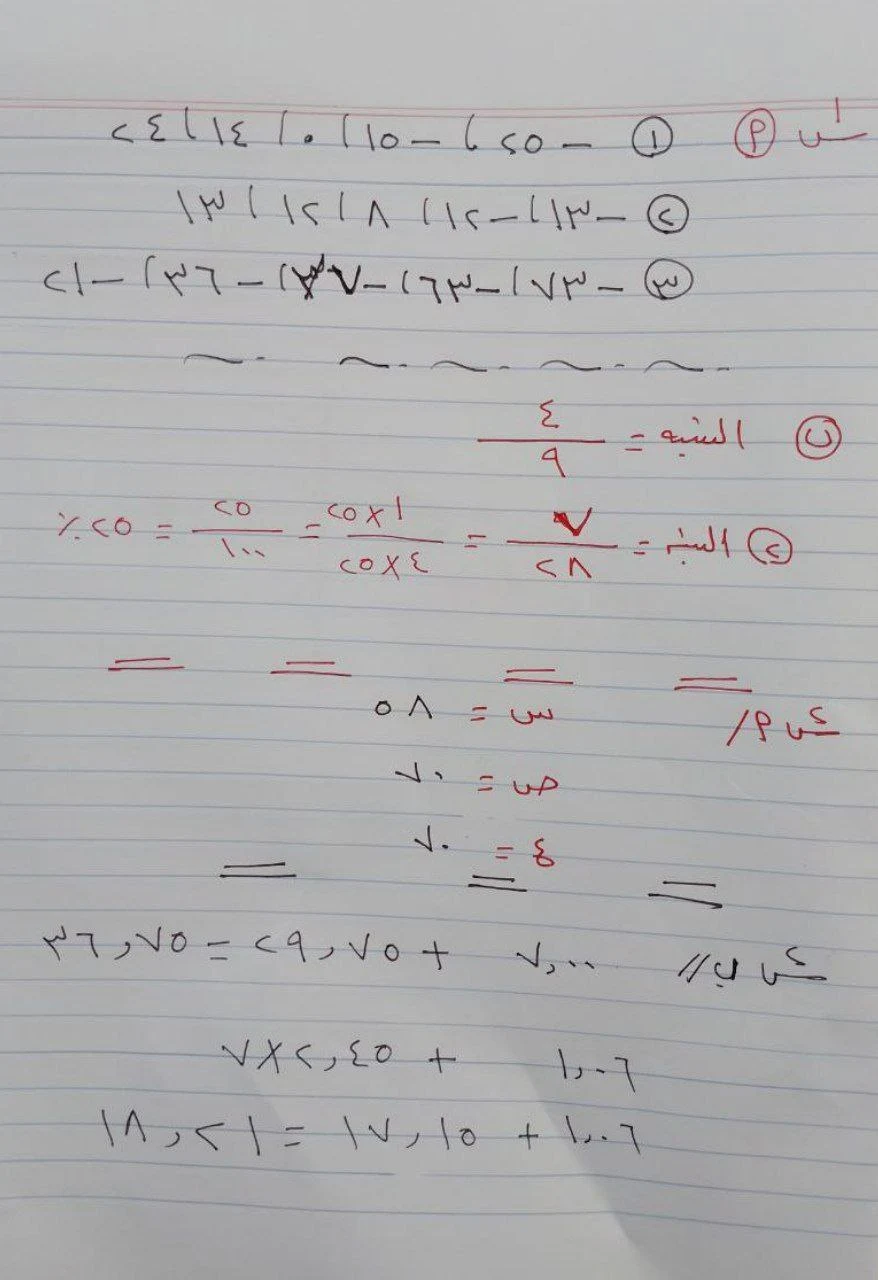 س١ (أ) (١) -٢٥، -١٥، ٠، ١٤، ٢٤
(٢) -١٣، -١٢، ٨، ١٢، ١٣
(٣) -٧٣، -٦٣، -٣٧، -٣٦، -٢١
(ب) النسبه = ٤/٩
(ج) النسبه = ٧/٢٨ = ١×٢٥/٤×٢٥ = ٢٥/١٠٠ = ٢٥٪
س٢ أ/ س = ٥٨
ص = ٧٠
ع = ٧٠
س٢ ب// ٧,٠٠ + ٢٩,٧٥ = ٣٦,٧٥
١,٠٦ + ٢,٤٥×٧
١,٠٦ + ١٧,١٥ = ١٨,٢١